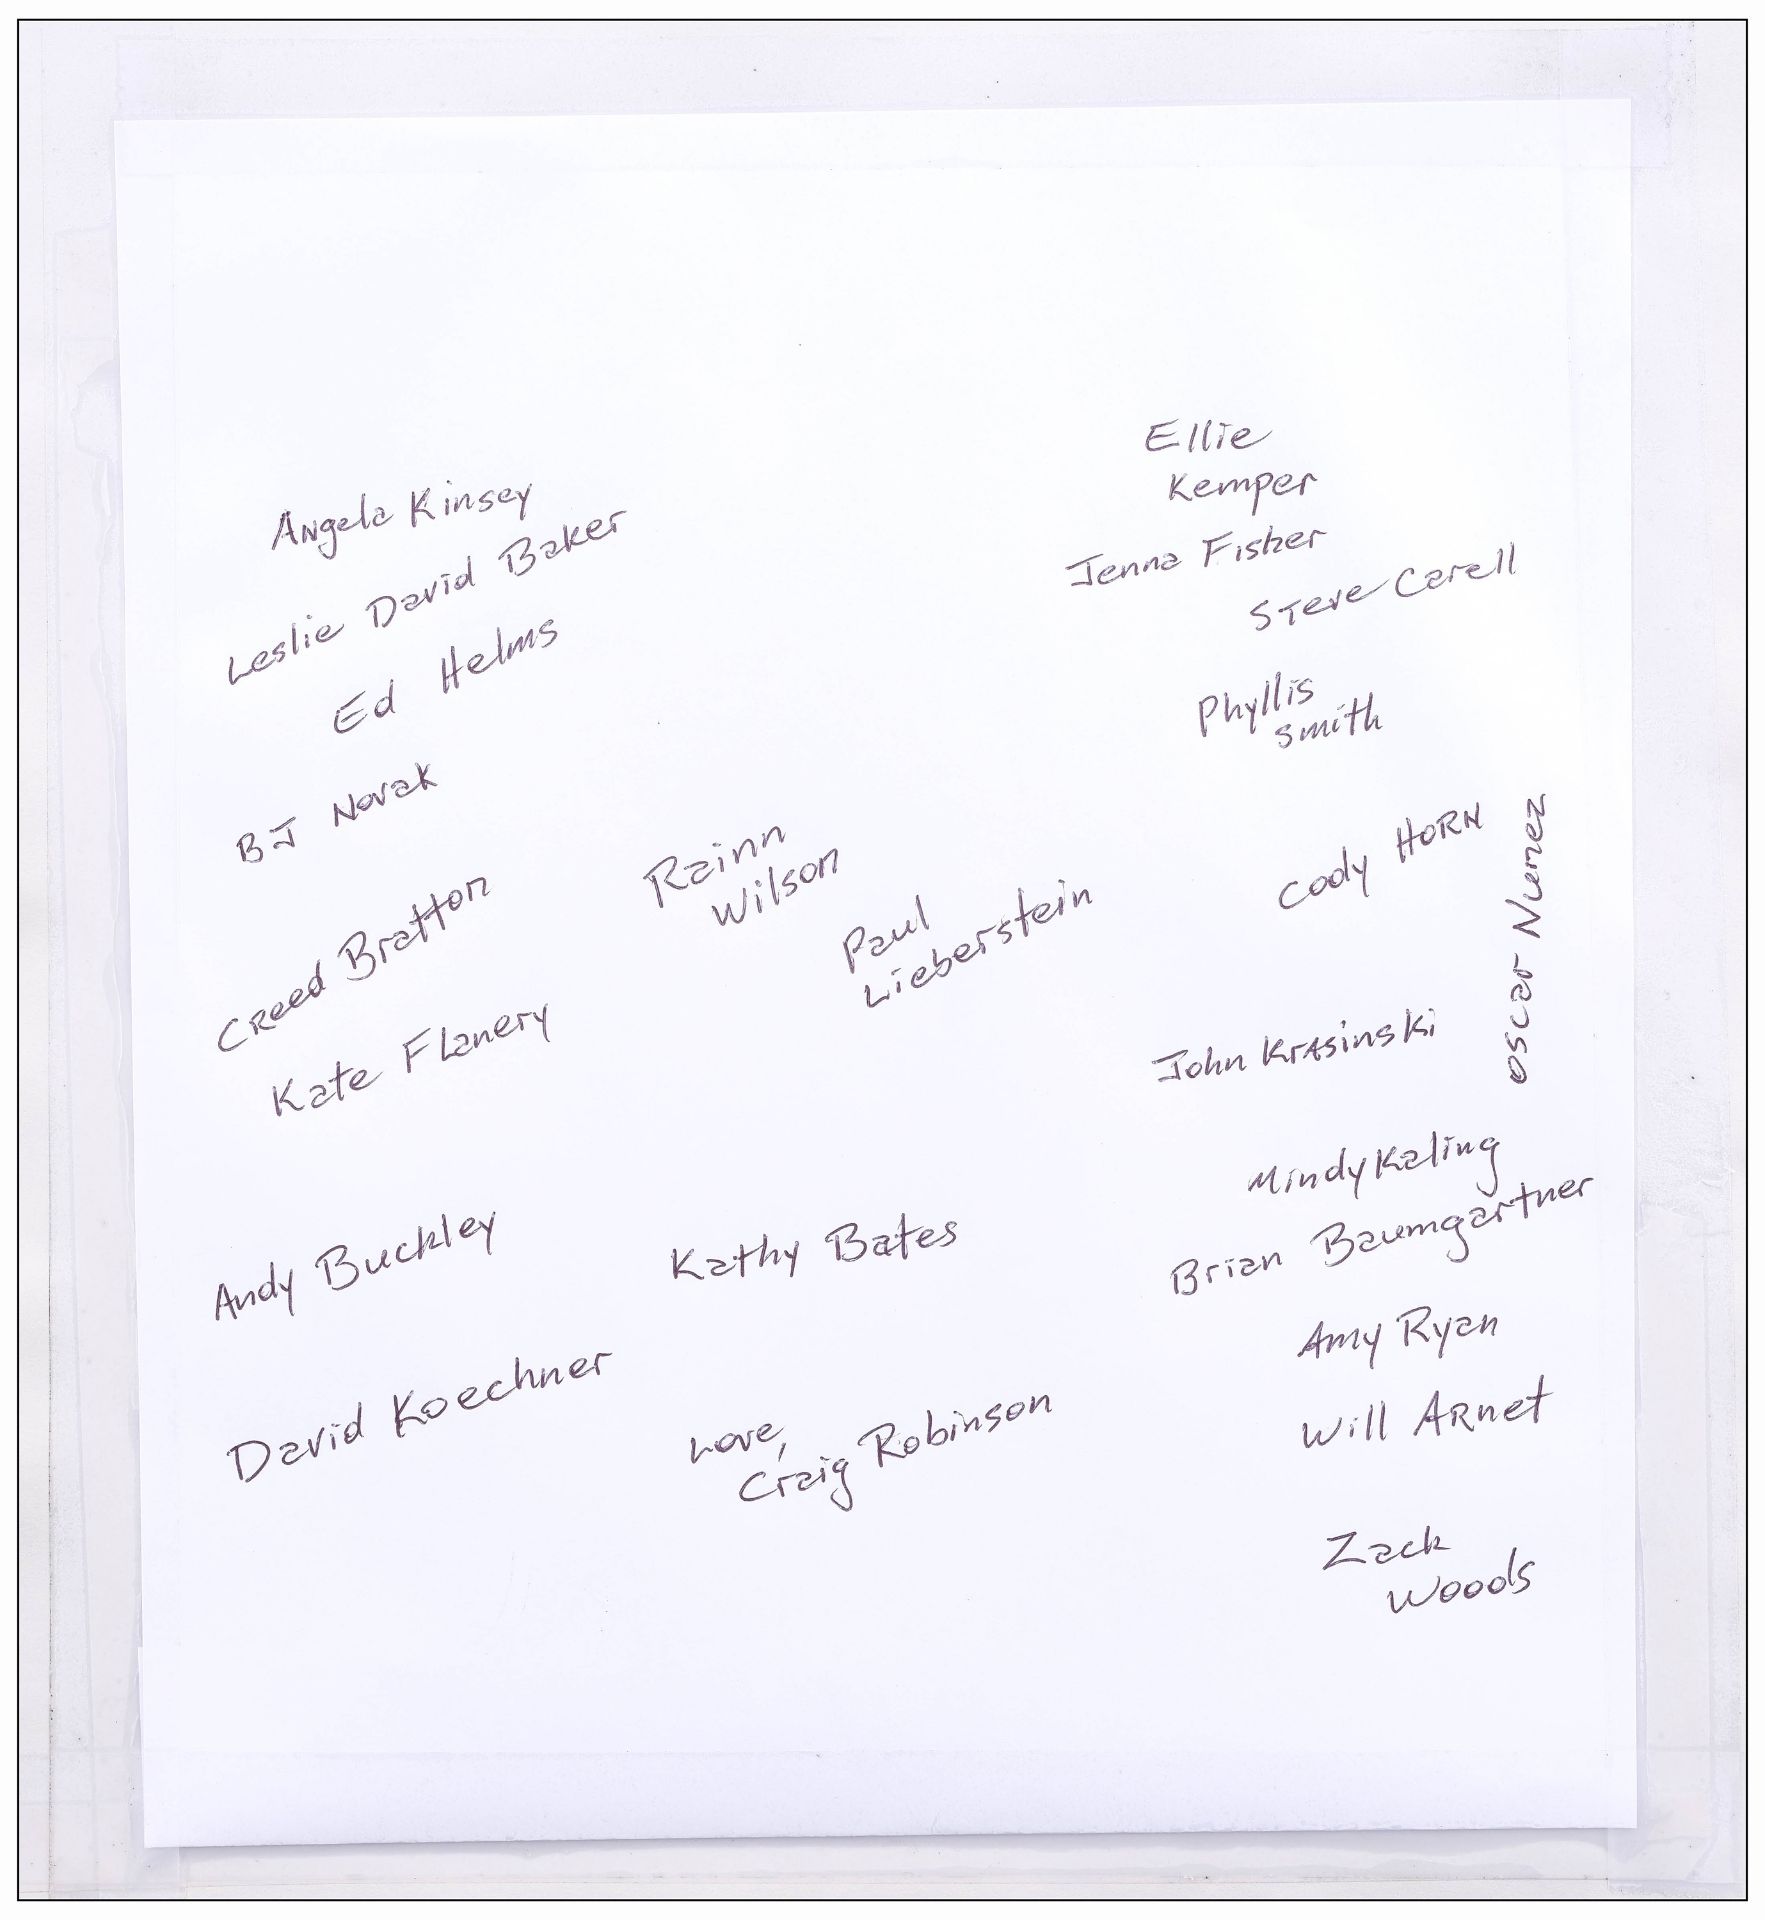 Angela Kinsey
Leslie David Baker
Ed Helms
BJ Novak
Creed Bratton
Kate Flanery
Andy Buckley
David Koechner
Rainn
Wilson
Paul
Lieberstein
Kathy Bates
Love,
Craig Robinson
Ellie
Kemper
Jenna Fisher
Steve Carell
Phyllis
Smith
Cody HORN
Oscar Nunez
John Krasinski
Mindy Kaling
Brian Baumgartner
Amy Ryan
Will Arnet
Zack
Woods